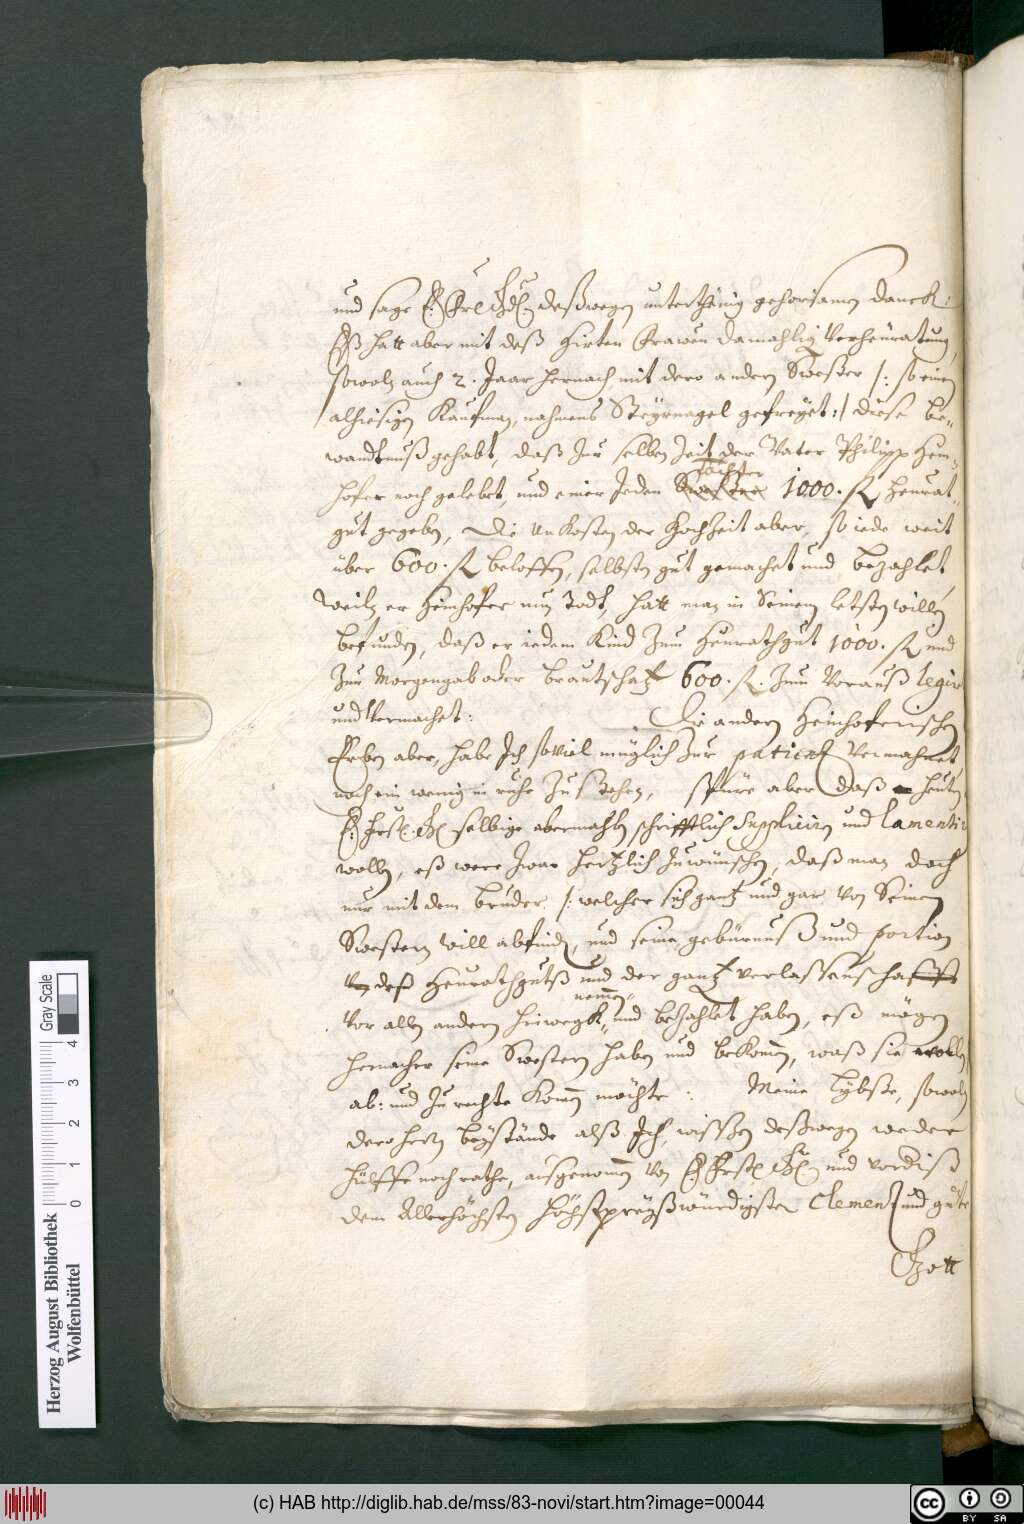 und sage E: Frl: Gd: deßwegen unterthenig gehorsamen danck:
Eß hatt aber mit deß Hirten Frawen damahlig Verheüratung,
sowolz auch 2. Jaar hernach mit dero andern Swester /: so einen
alhiesigen Kaufman, nahmens Steyrnagel gefreyet :/ diese be-
wandtnuß gehabt, daß zur selben Zeit der Vater Philipp Hein-
hofer noch gelebet, und einer Jeden Töchter 1000. fl Heurat-
gut gegeben, die Unkosten der Hochzeit aber, so iede weit
über 600. fl beloffen, selbsten gut gemachet und bezahlet
Weilz er Heinhofer nun Todt, hatt man in Seinem letsten willen
befunden, daß er iedem Kind zum Heurathgut 1000. fl und
Zur Morgengab oder Brautschatz 600. fl. zum Vorauß legir
und Vermachet: Die andern Heinhoferischen
Erben aber, habe Ich soviel müglich zur patientz Vermahnet,
noch ein wenig in ruhe zu stehen, spüre aber daß heuten
E: Frstl: Gd: selbige abermahls schrifftlich Suppliciren und lamentir
wollen, eß were zwar hertzlich zuwünschen, daß man doch
nur mit dem bruder /: welcher sich gantz und gar von Seinen
Swestern will abfinden, und seine gebürnuß und portion
deß Heurathgutß und der gantz verlassenschafft
nemmen
Vor allen andern hinwegk, und bezahlet haben, eß mögen
hernacher seine Swestern haben und bekomen, waß sie wollen
ab: und zu rechte komen möchte: Meine Lybste, sowolz
dero herrn beystände alß Ich, wissen deßwegen weder
hülffe noch rathe, außgenomen von E: Frstl: Gd: und vordiß
dem Allerhöchsten Höchstpreyßwürdigster Clementz und güte
Gott
Herzog August Bibliothek
Wolfenbüttel
0 1 2 3 4
Gray Scale
(c) HAB http://diglib.hab.de/mss/83-novi/start.htm?image=00044
cc BY SA